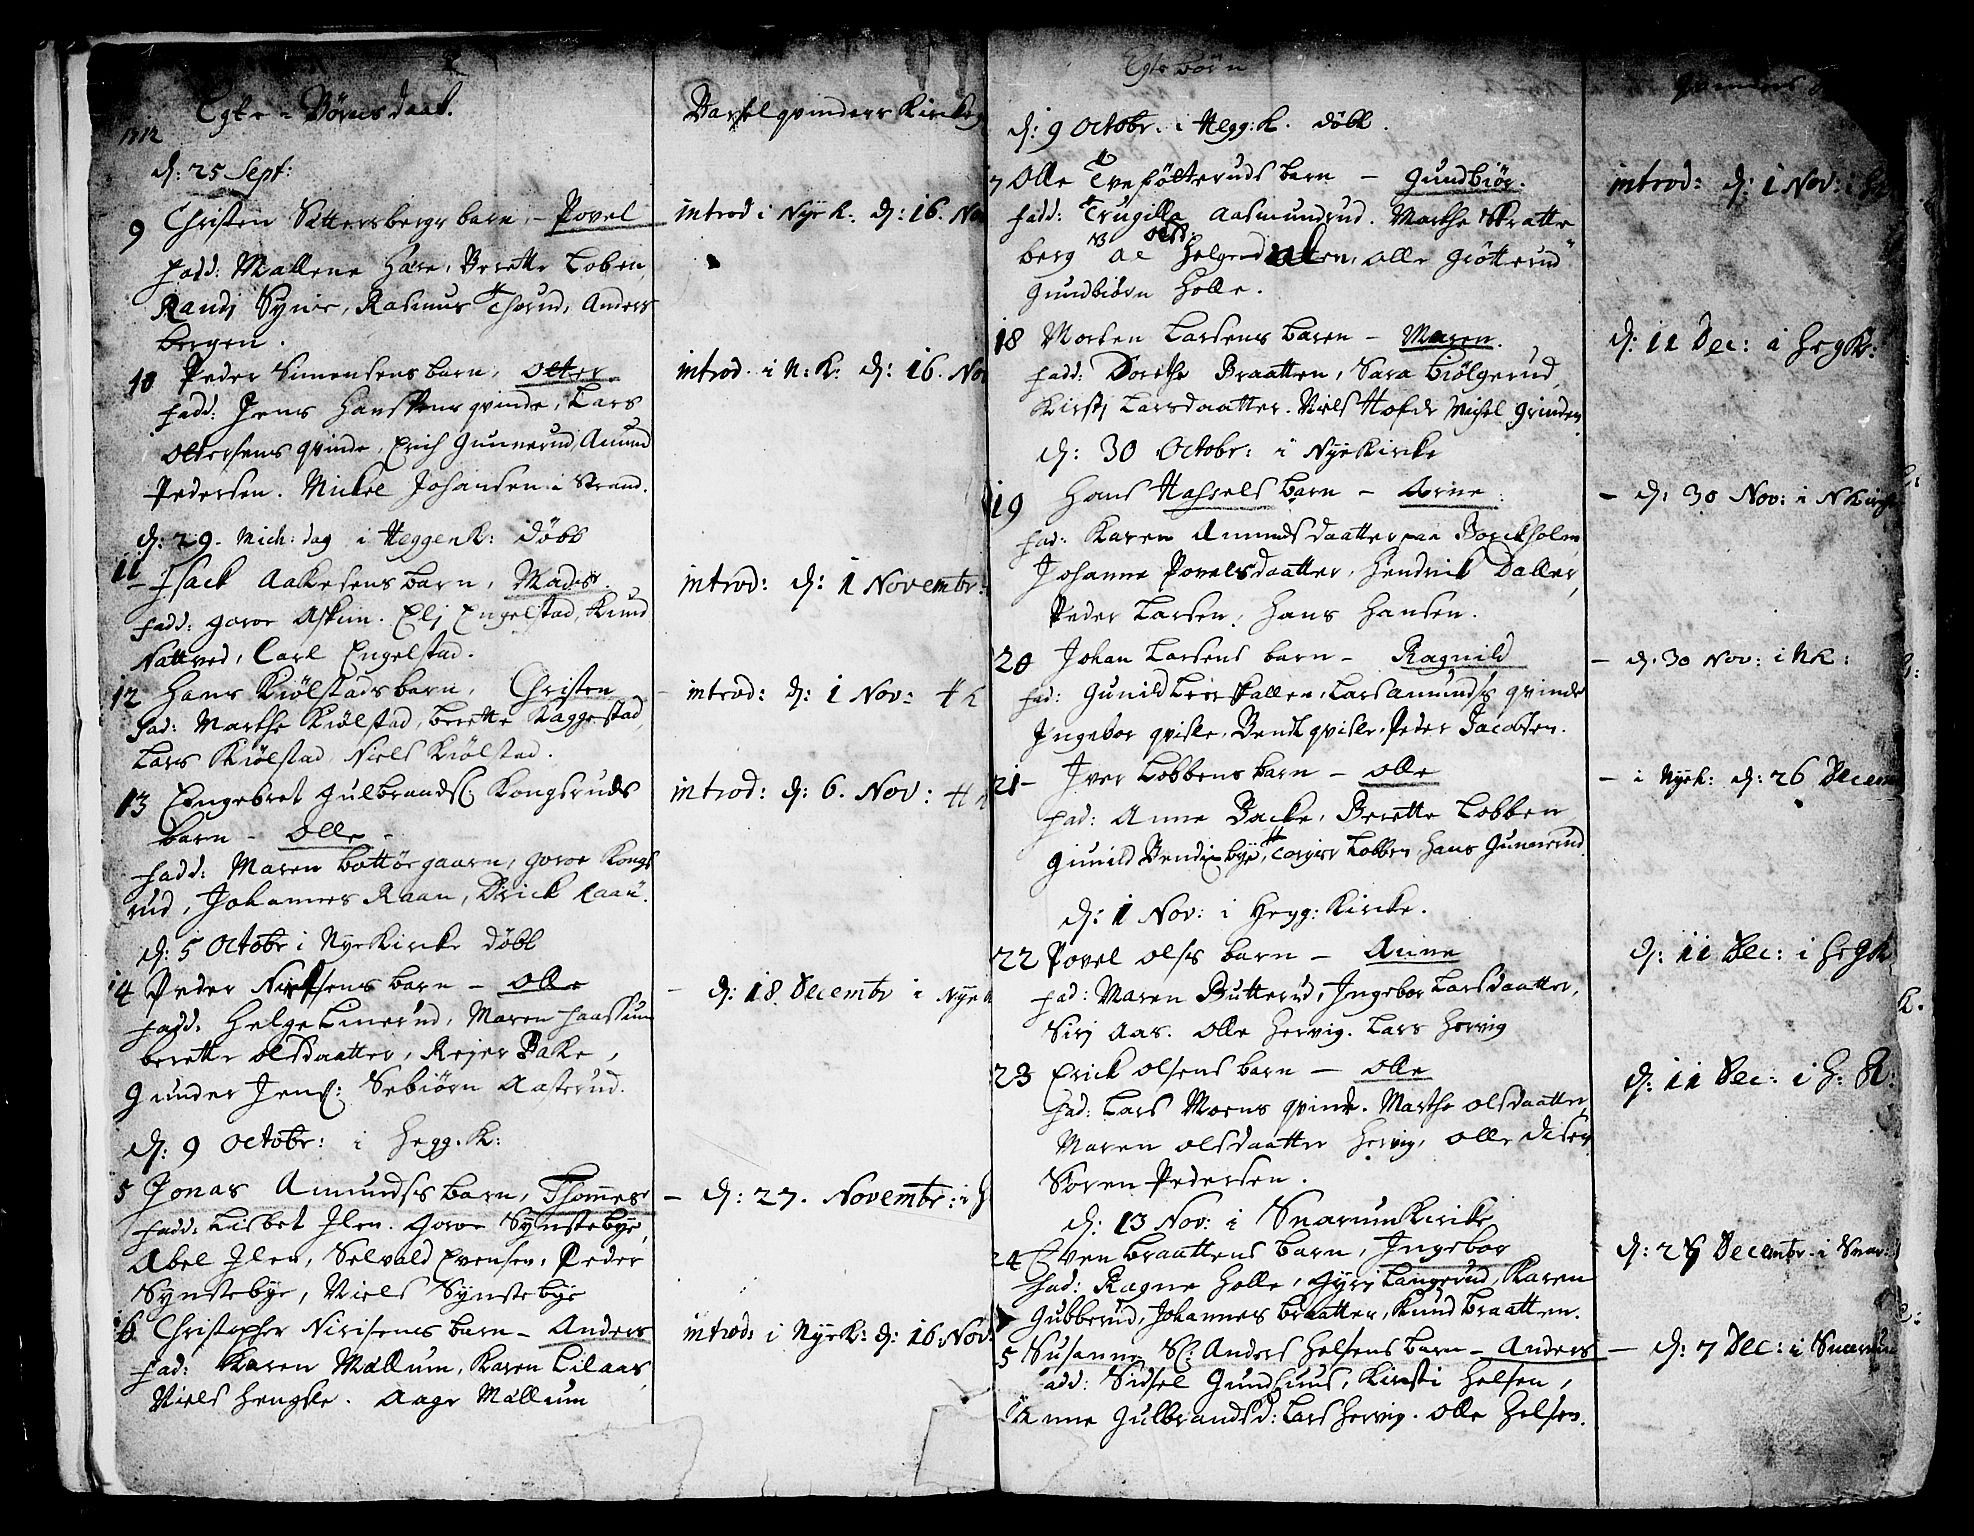 Egte Børns daab.
1712
d: 25 Sept:
9 Christen Sættersbergs barn, - Povel
fadd: Mallene Hære, Berette Loben,
Randj Synie, Rasmus Thorud, Anders
bergen.
10 Peder Simensens barn, Otter
fadd: Jens Hans qvinde, Lars
Ottersens qvinde, Erich Gunnerud, Amund
Pedersen. Mickel Johansen i Strand.
d: 29. Mich: dag i Heggenk: døbt
11 Isack Aakesens barn, Mads.
fadd: Goroe Askim. Elj Engelstad, Knud
Nattved, Carl Engelstad.
12 Hans Kiølstads barn, Christen
fad: Marthe Kiølstad, berette Kaggestad,
Lars Kiølstad, Niels Kiølstad.
13 Engebret Gulbrands: Kongsruds
barn - Olle -
fadd: Maren bottørgaarn, Goroe Kongs
rud, Johannes Raan, Erick Raan.
d: 5 Octobr i NyeKircke døbt
14 Peder Nielsens barn - Olle
fadd: Helge Linerud, Maren Haaskum
berette Olsdaatter, Rejer Bake,
Gunder Jens: Sebiørn Aasterud.
d: 9 Octobr: i Hegg:K:
5 Jonas Amundss barn, Thomes
fadd: Lisbet Jlen. Goroe Synstebye,
Abel Jlen, Selvald Evensen, Peder
Synstebye, Niels Synstebye
16 Christopher Nirisens barn - Anders
fad: Karen Mællum, Karen Lilaas,
Niels Hengsle. Aage Mællum
Barselqvinders Kirckeg
introd i NyeK: d: 16. No
introd. i N:K: d: 16. Nov
introd: d: 1 Novembr:
- introd: d: 1 Nov: HK
introd: d: 6. Nov: H K
- d: 18 Decembr i NyeK
- d: 27. Novembr: i H
introd: i NyeK: d: 16. Nov.
Egte Børn
d: 9 Octobr. i Hegg:K. døbt.
7 Olle Tvefötteruds barn - Gundbiør.
fadd: Trugils Aasmundrud. Marthe Skratte
berg Helgerud Olle Grøtterud
Gundbiørn Holle.
18 Morten Larsens barn - Maren.
fadd: Dorethe Braatten, Sara Biølgerud,
Kirstj Larsdaatter. Niels Hofde Michel Grinden
d: 30 Octobr: i NyeKircke
19 Hans Hassels barn - Arne.
fad: Karen Amundsdaatter paa Borckholm,
Johanne Povelsdaatter, Hendrick Daller,
Peder Larsen, Hans Hansen.
20 Johan Larsens barn - Ragnild
fad: Gunild Leerskallen, Lars Amunds qvinde
Ingebor qvisle, Bendt qvisle, Peder Jacobsen.
21 - Iver Lobbens barn - Olle
fad: Anne Backe, Berette Lobben
Gunild Vendixbye, Torger Lobben, Hans Gunnerud
d: 1 Nov: i Hegg: Kircke.
22 Povel Olss barn - Anne
fad: Maren Butterud, Ingebor Larsdaatter,
Sirj Aas. Olle Hervig. Lars Hervig
23 Erick Olsens barn - Olle
fad: Lars Moens qvinde. Marthe Olsdaatter,
Maren Olsdaatter Hervig, Olle Disen
Søren Pedersen.
d: 13 Nov: i SnarumKircke
24 Even Braattens barn, Ingebor
fad: Ragne Holle, Gyrj Langerud, Karen
Gubberud, Johannes Braatten, Knud Braatten.
5 Susanne Sl: Anders Helsens barn - Anders
add: Sidsel Gundhuus, Kirsti Helsen,
Anne Gulbrandsd: Lars Hervig. Olle Helsen.
introd: d: 1 Nov:
d: 11 Dec: i HegK:
- d: 30 Nov: i NKirck
- d: 30 Nov: i NK:
- i NyeK: d: 26 Decem
d: 11 Dec: i HegK
d: 11 Dec: i H: K:
d: 2 Decembr i Snar:
- d: 7 Dec: i Snarum